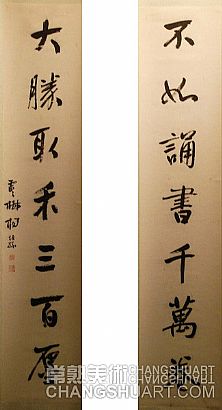 不如誦書千萬卷
大勝取禾三百廛
常熟
CHANGSHUART.COM